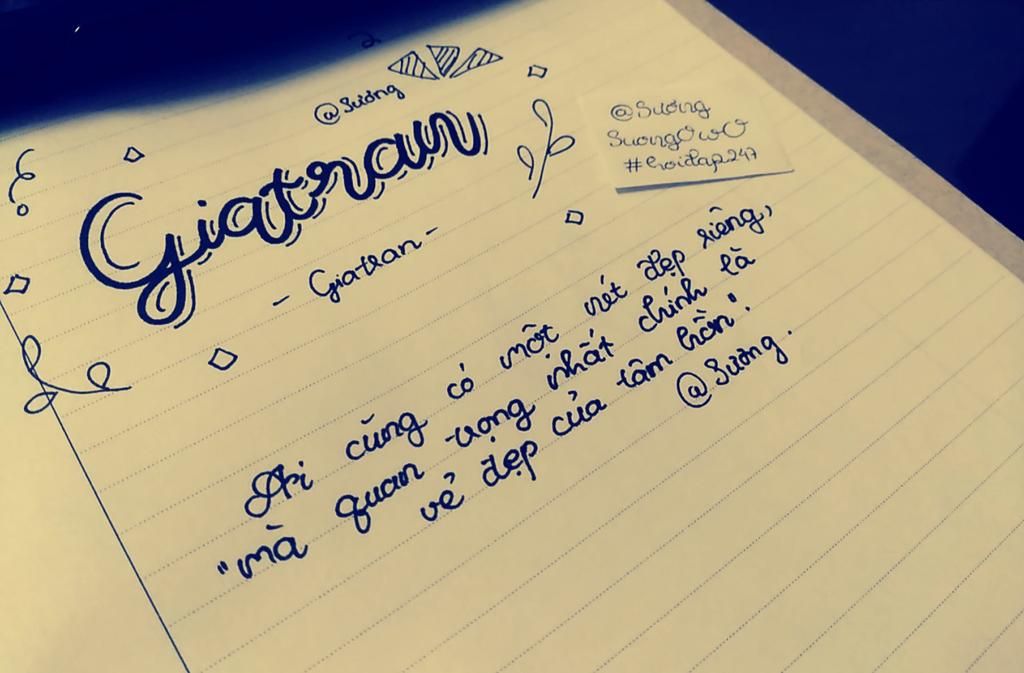 @Sương
Giatran
- Giatran -
@Sương
SuongOwO
#hoidap247
Ai cũng có một nét đẹp riêng,
"mà quan trọng nhất chính là
vẻ đẹp của tâm hồn".
@Sương.